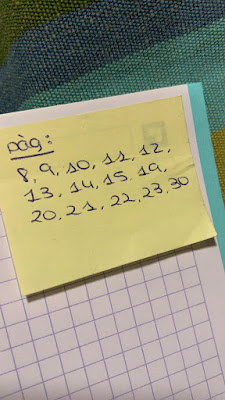 pàg:
8, 9, 10, 11, 12,
13, 14, 15, 19,
20, 21, 22, 23, 30